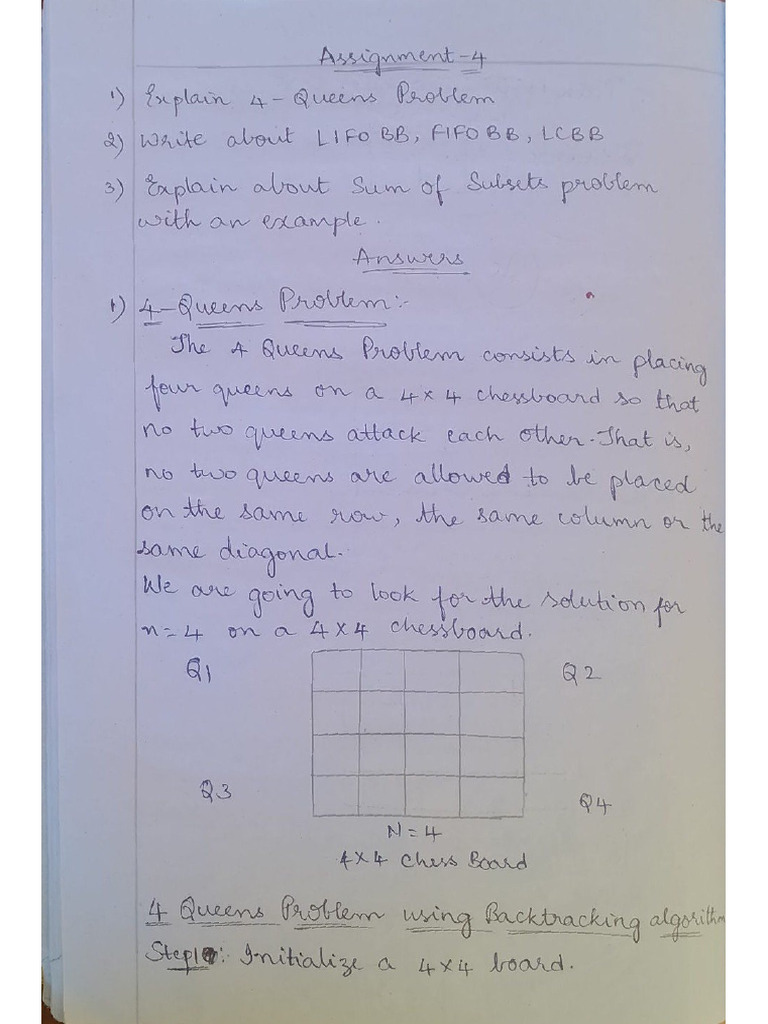 Assignment-4
1) Explain 4-Queens Problem
2) Write about LIFOBB, FIFOBB, LCBB
3) Explain about Sum of Subsets problem
with an example.
Answers
1) 4-Queens Problem:-
The 4 Queens Problem consists in placing
four queens on a 4×4 chessboard so that
no two queens attack each other. That is,
no two queens are allowed to be placed
on the same row, the same column or the
same diagonal.
We are going to look for the solution for
n=4 on a 4×4 chessboard.
Q1 Q2
Q3 Q4
N=4
4×4 Chess Board
4 Queens Problem using Backtracking algorithm
Step1: Initialize a 4×4 board.